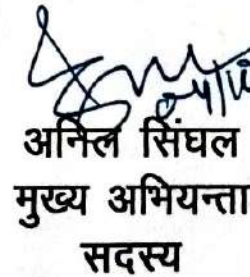 अनिल सिंघल
मुख्य अभियन्ता
सदस्य